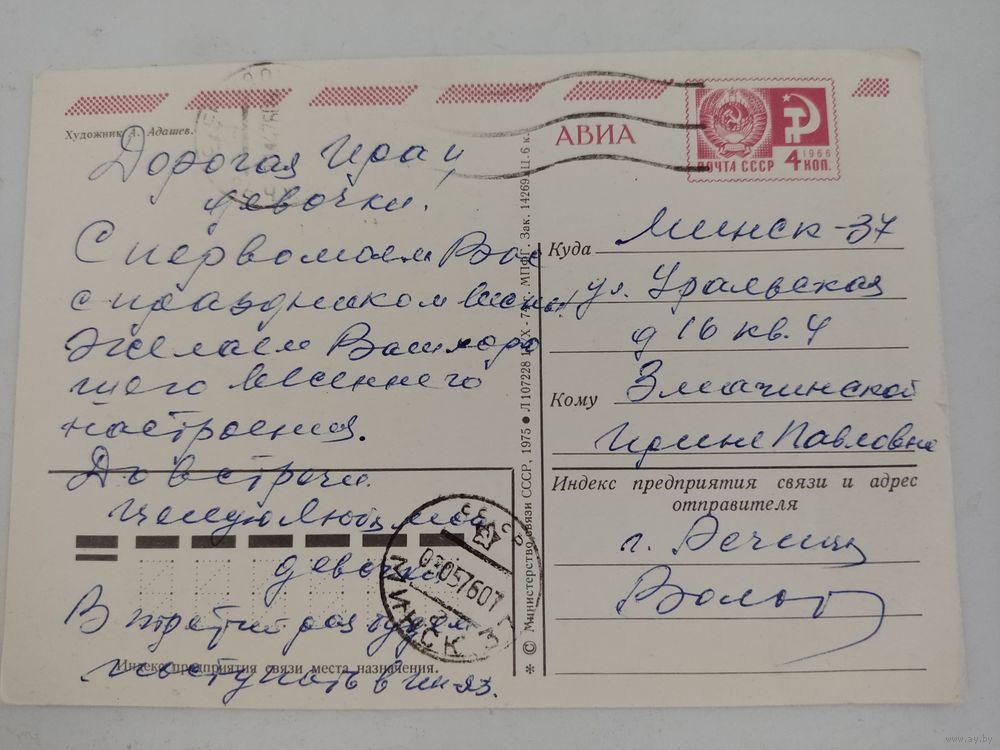 Художник А. Адашев.
АВИА
ПОЧТА СССР 4 КОП.
1966
Дорогая Ира и
девочки.
С первомаем Вас
с праздником весны!
Желаем Вам хоро
шего весеннего
настроения.
До встречи
Целую Люба
девочки
В третий раз будем
поступать в иняз.
Куда Минск-37
ул. Уральская
д 16 кв. 4
Кому Змачинской
Ирине Павловне
Индекс предприятия связи и адрес
отправителя
г. Речица
Индекс предприятия связи места назначения.
МИНСК
030576
* © Министерство связи СССР, 1975 ● Л 107228 МПФГ. Зак. 14269 Ц. 6 к.
www.ay.by